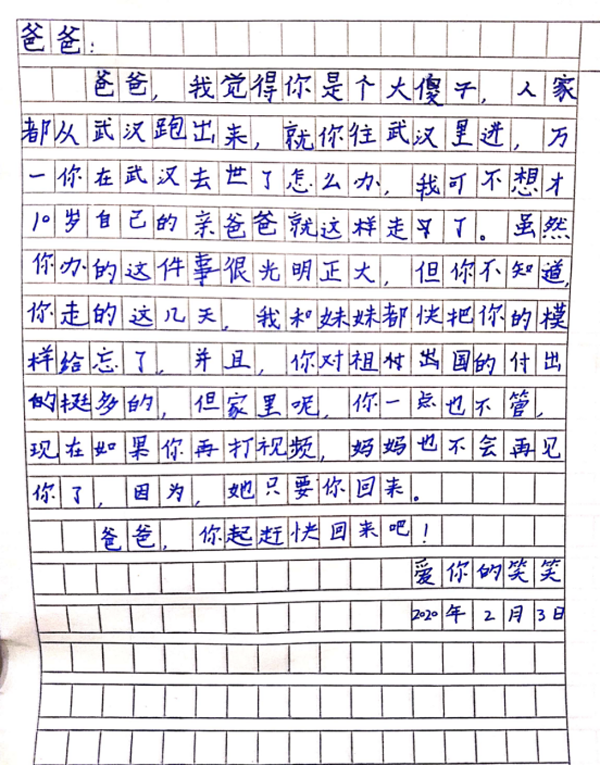 爸爸：
爸爸，我觉得你是个大傻子，人家
都从武汉跑出来，就你往武汉里进，万
一你在武汉去世了怎么办，我可不想才
10岁自己的亲爸爸就这样走了。虽然
你办的这件事很光明正大，但你不知道，
你走的这几天，我和妹妹都快把你的模
样给忘了，并且，你对祖国的付出
的挺多的，但家里呢，你一点也不管，
现在如果你再打视频，妈妈也不会再见
你了，因为，她只要你回来。
爸爸，你起赶快回来吧！
爱你的笑笑
2020年2月3日